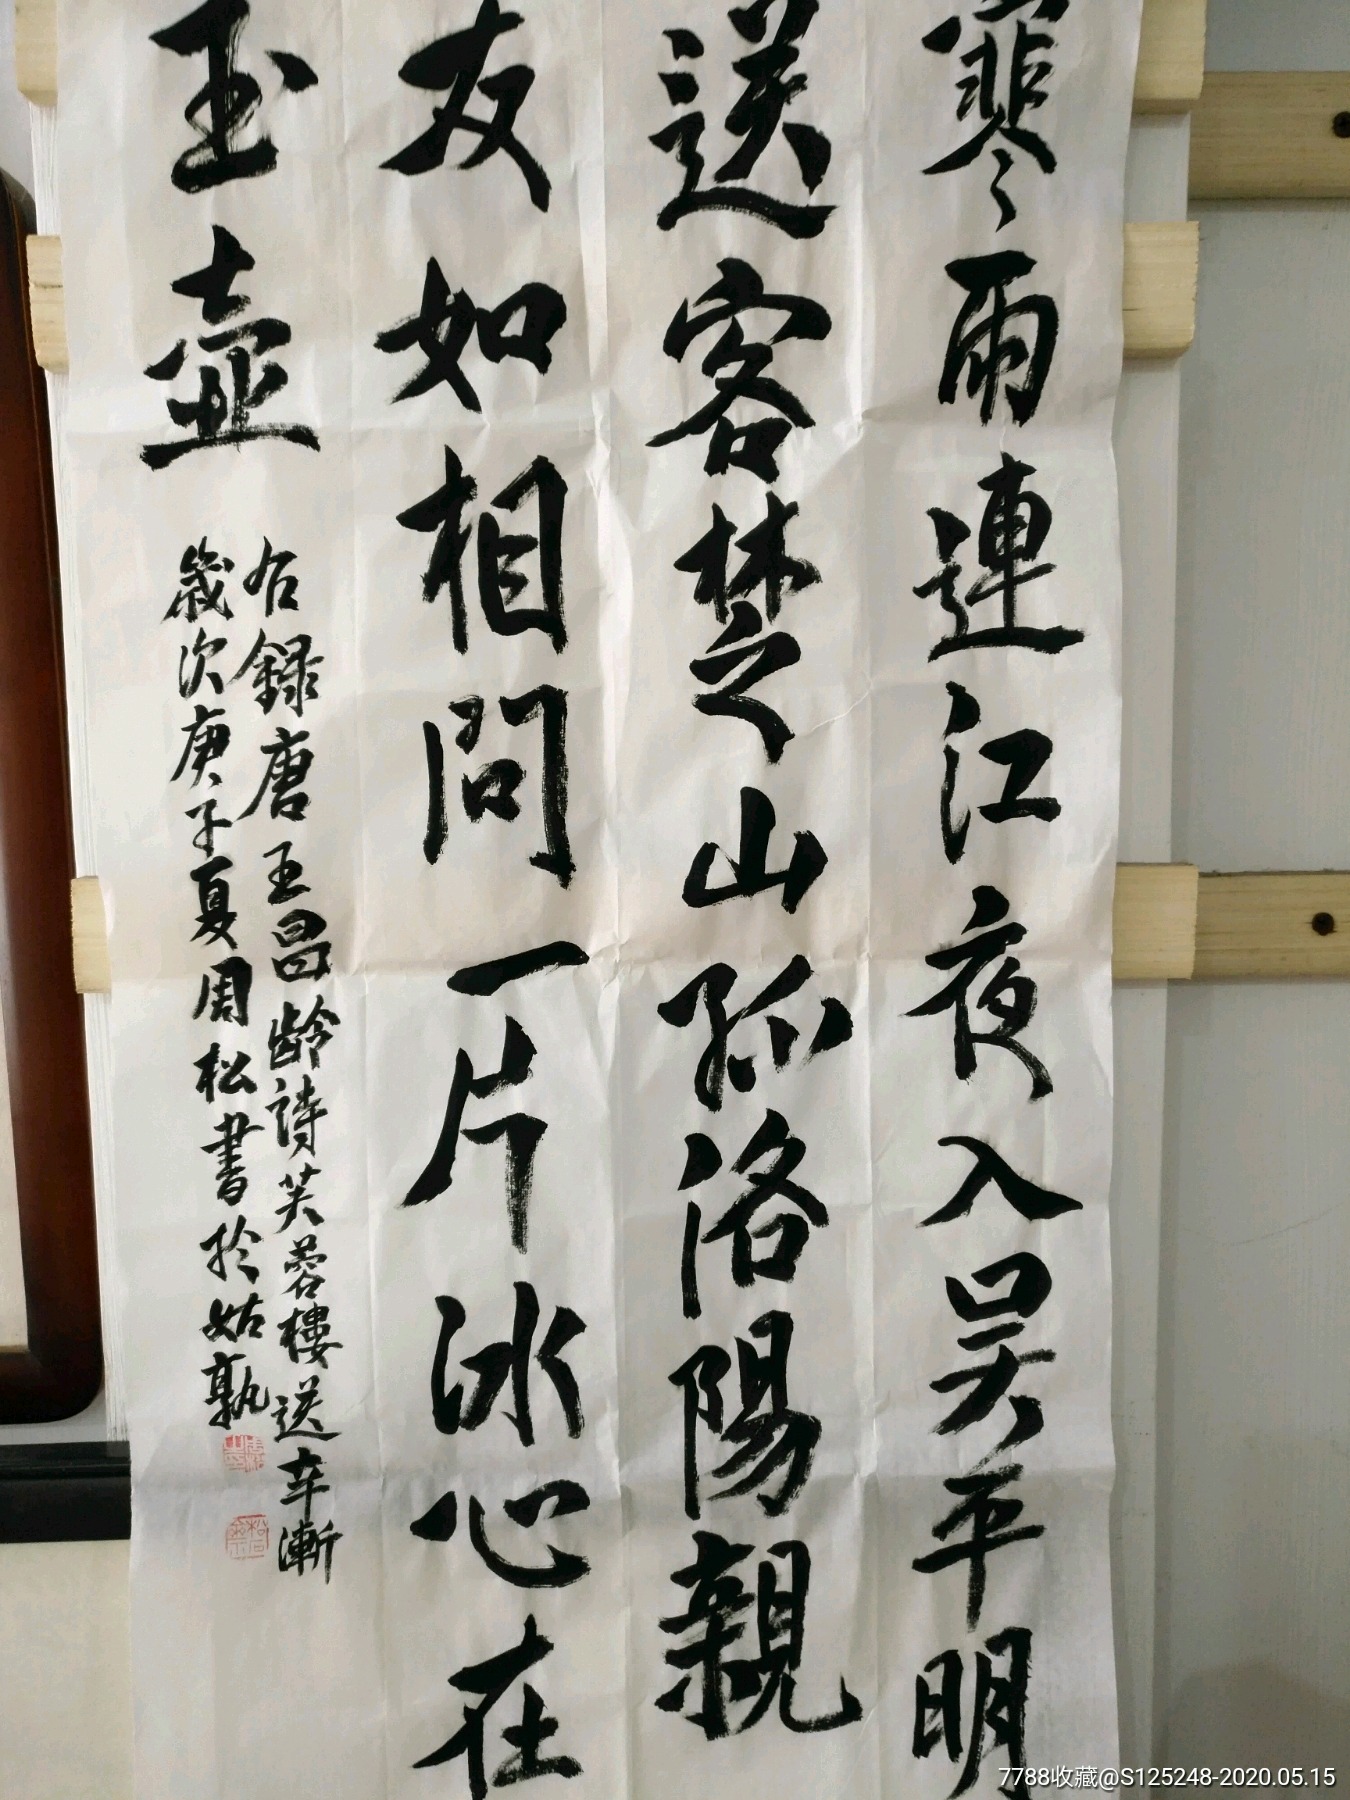 寒雨連江夜入吴平明
送客楚山孤洛陽親
友如相問一片冰心在
玉壺
右録唐王昌齡詩芙蓉樓送辛漸
歲次庚子夏周松書於姑孰
7788收藏@S125248-2020.05.15